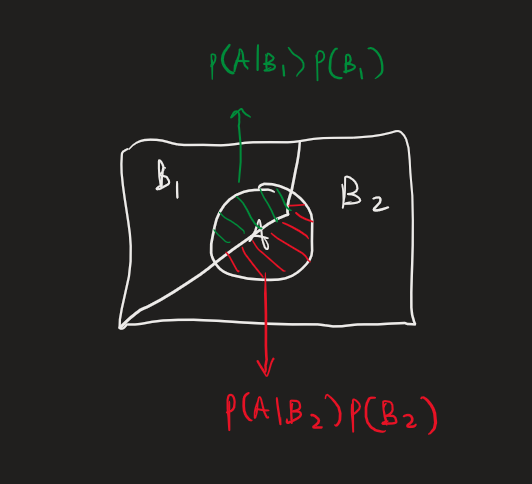 P(A|B₁) P(B₁)
B₁
B₂
A
P(A|B₂) P(B₂)